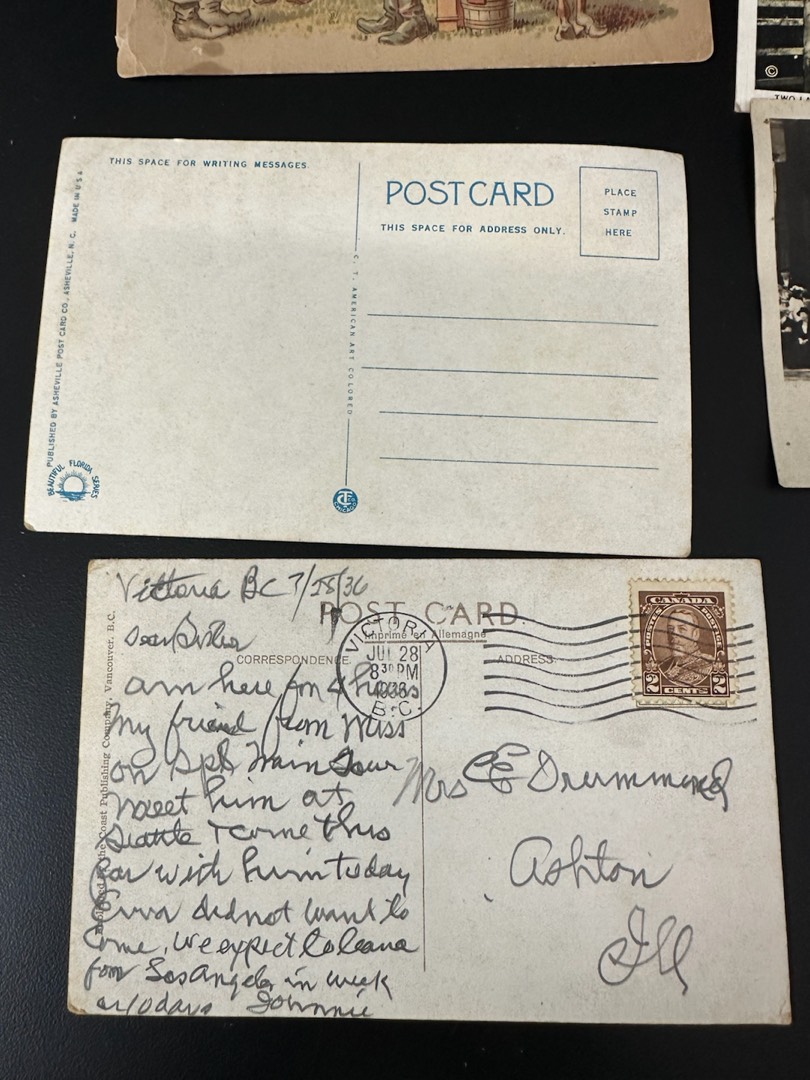 ©
THIS SPACE FOR WRITING MESSAGES
POSTCARD
THIS SPACE FOR ADDRESS ONLY.
PLACE
STAMP
HERE
PUBLISHED BY ASHEVILLE POST CARD CO., ASHEVILLE, N. C. MADE IN U S A
C. T. AMERICAN ART COLORED
BEAUTIFUL FLORIDA SERIES
Victoria BC 7/28/36
POST CARD.
Imprimé en Allemagne
Dear Sister
CORRESPONDENCE
ADDRESS
VICTORIA
JUL 28
8 30 PM
1936
B.C.
CANADA
POSTES POSTAGE
2 2
CENTS
Coast Publishing Company, Vancouver, B.C.
am here for 4 hours
My friend from Miss
on Spl train tour
meet him at
Seattle + come this
far with him today
did not want to
come, we expect to leave
for Los Angeles in week
or 10 days Johnnie
Mrs CE Drummond
Ashton
Ill